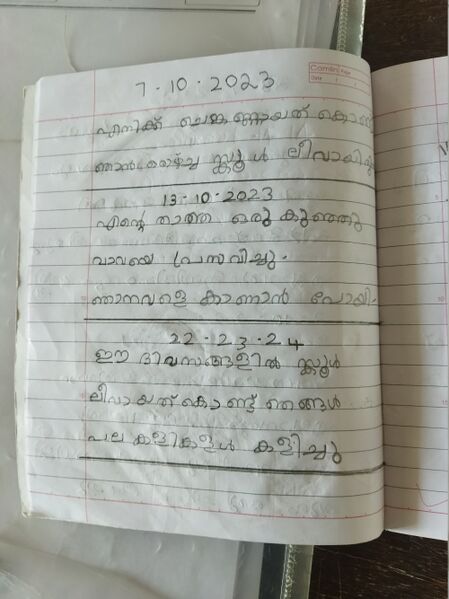 7.10.2023
എനിക്ക് ചെങ്കണ്ണായത് കൊണ്ട്
സ്കൂൾ ലീവായിരു
13.10.2023
എന്റെ താത്ത ഒരു കുഞ്ഞു
വാവയെ പ്രസവിച്ചു.
ഞാനവളെ കാണാൻ പോയി.
22.23.24
ഈ ദിവസങ്ങളിൽ സ്കൂൾ
ലീവായത്കൊണ്ട് ഞങ്ങൾ
പല കളികളൾ കളിച്ചു